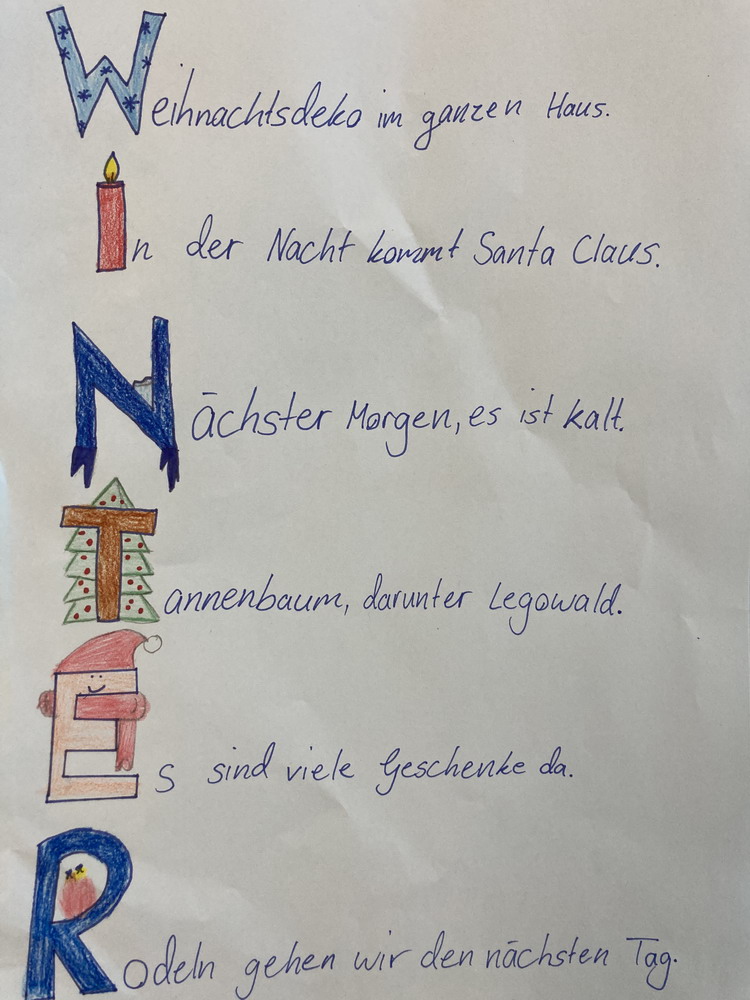 Weihnachtsdeko im ganzen Haus.
In der Nacht kommt Santa Claus.
Nächster Morgen, es ist kalt.
Tannenbaum, darunter Legowald.
Es sind viele Geschenke da.
Rodeln gehen wir den nächsten Tag.